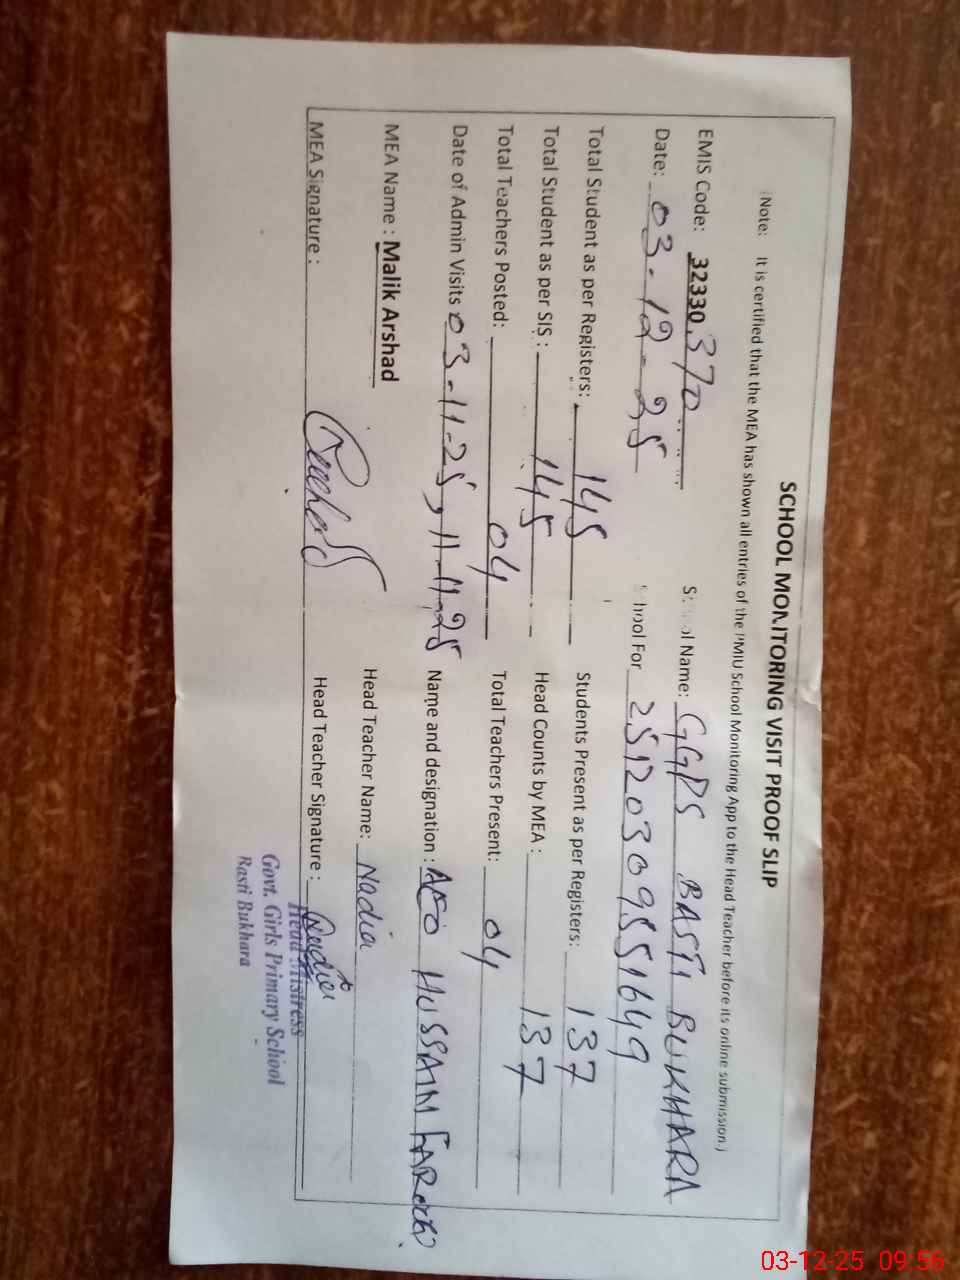 SCHOOL MONITORING VISIT PROOF SLIP
(Note: It is certified that the MEA has shown all entries of the PMIU School Monitoring App to the Head Teacher before its online submission.)
EMIS Code: 32330 370 School Name: GGPS BASTI BUKHARA
Date: 03-12-25 School For 25120309551649
Total Student as per Registers: 145 Students Present as per Registers: 137
Total Student as per SIS: 145 Head Counts by MEA: 137
Total Teachers Posted: 04 Total Teachers Present: 04
Date of Admin Visits 03-11-25, 11-11-25 Name and designation: AEO HUSSAIN
MEA Name: Malik Arshad Head Teacher Name: Nadia
MEA Signature: Head Teacher Signature: Nadia
Head Mistress
Govt. Girls Primary School
Basti Bukhara
03-12-25 09:56